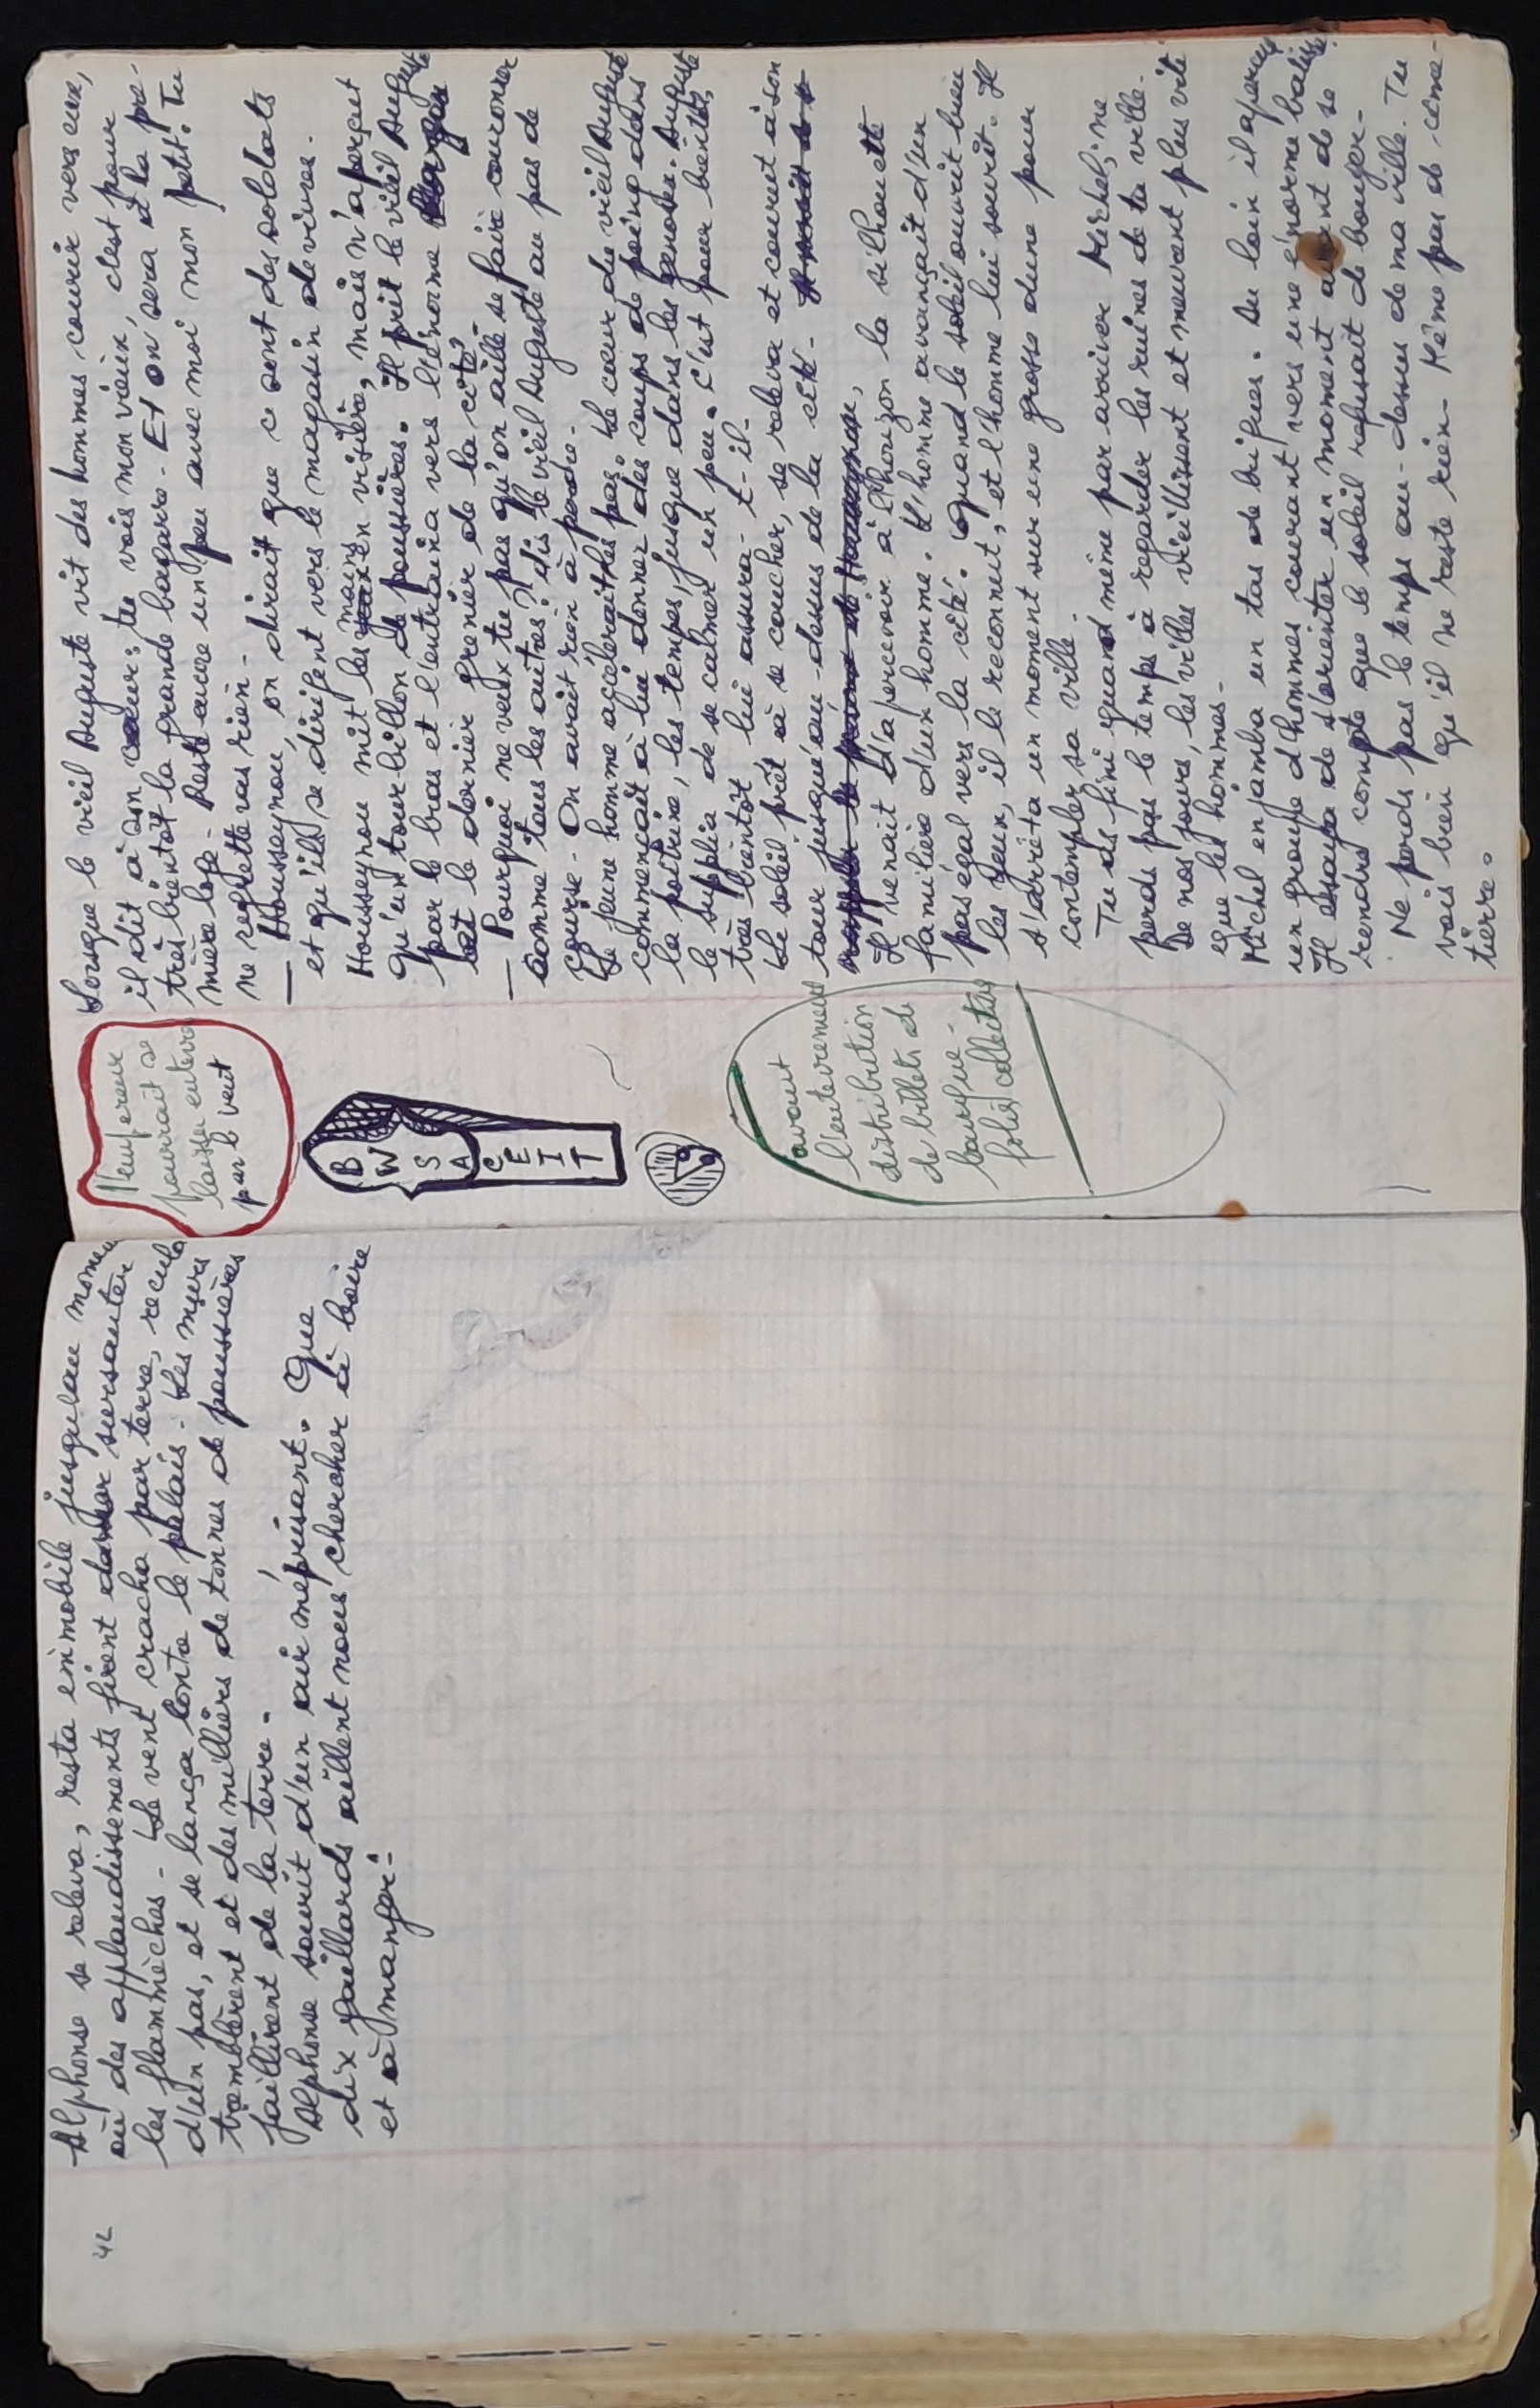 42
Alphonse se releva, resta immobile jusqu'au momen
où des applaudissements firent sursauter
les flammèches - Le vent cracha par terre, recula
d'un pas, et se lança contre le palais - Les murs
tremblèrent et des milliers de tonnes de poussières
jaillirent de la terre -
Alphonse sourit d'un air méprisant. Que
dix gaillards aillent nous chercher à boire
et à manger -
l'empereur
pourrait se
laisser enterre
par le vent
B
W
S
A
C
E
I
T
avant
l'enterrement
distribution
de billets de
banque -
folie collective
Lorsque le vieil Auguste vit des hommes courir vers eux,
il dit à son cœur: tu vois mon vieux, c'est pour
très bientôt la grande bagarre - Et on sera à la pre-
mière loge - Reste encore un peu avec moi mon petit. Tu
ne regretteras rien -
— Housseynou, on dirait que ce sont des soldats
et qu'ils se dirigent vers le magasin de vivres.
Housseynou mit les mains en visière, mais n'aperçut
qu'un tourbillon de poussières. Il prit le vieil Auguste
par le bras et l'entraina vers l'énorme
le dernier grenier de la cité.
— Pourquoi ne veux tu pas qu'on aille se faire couronner
comme tous les autres? dis le vieil Auguste au pas de
course - On aurait rien à perdre -
Le jeune homme accélerait les pas. Le cœur du vieil Auguste
commençait à lui donner des coups de poing dans
la poitrine, les tempes, jusque dans les genoux. Auguste
le supplia de se calmer un peu. C'est pour bientôt,
très bientôt, lui assura-t-il -
Le soleil prêt à se coucher, se releva et courut à son
tour jusqu'au-dessus de la cité -
Il venait d'apercevoir à l'horizon la silhouette
familière d'un homme. L'homme avançait d'un
pas égal vers la cité. Quand le soleil ouvrit bien
les yeux, il le reconnut, et l'homme lui sourit. Il
s'arrêta un moment sur une grosse dune pour
contempler sa ville -
Tu as fini quand même par arriver Michel; ne
perds pas le temps à regarder les ruines de ta ville -
De nos jours, les villes vieillissent et meurent plus vite
que les hommes -
Michel enjamba un tas de briques. Au loin il aperçut
un groupe d'hommes courant vers une énorme balise
Il essaya de s'orienter un moment avant de se
rendre compte que le soleil refusait de bouger -
Ne perds pas le temps au-dessus de ma ville. Tu
vois bien qu'il ne reste rien - Même pas de cime-
tière.